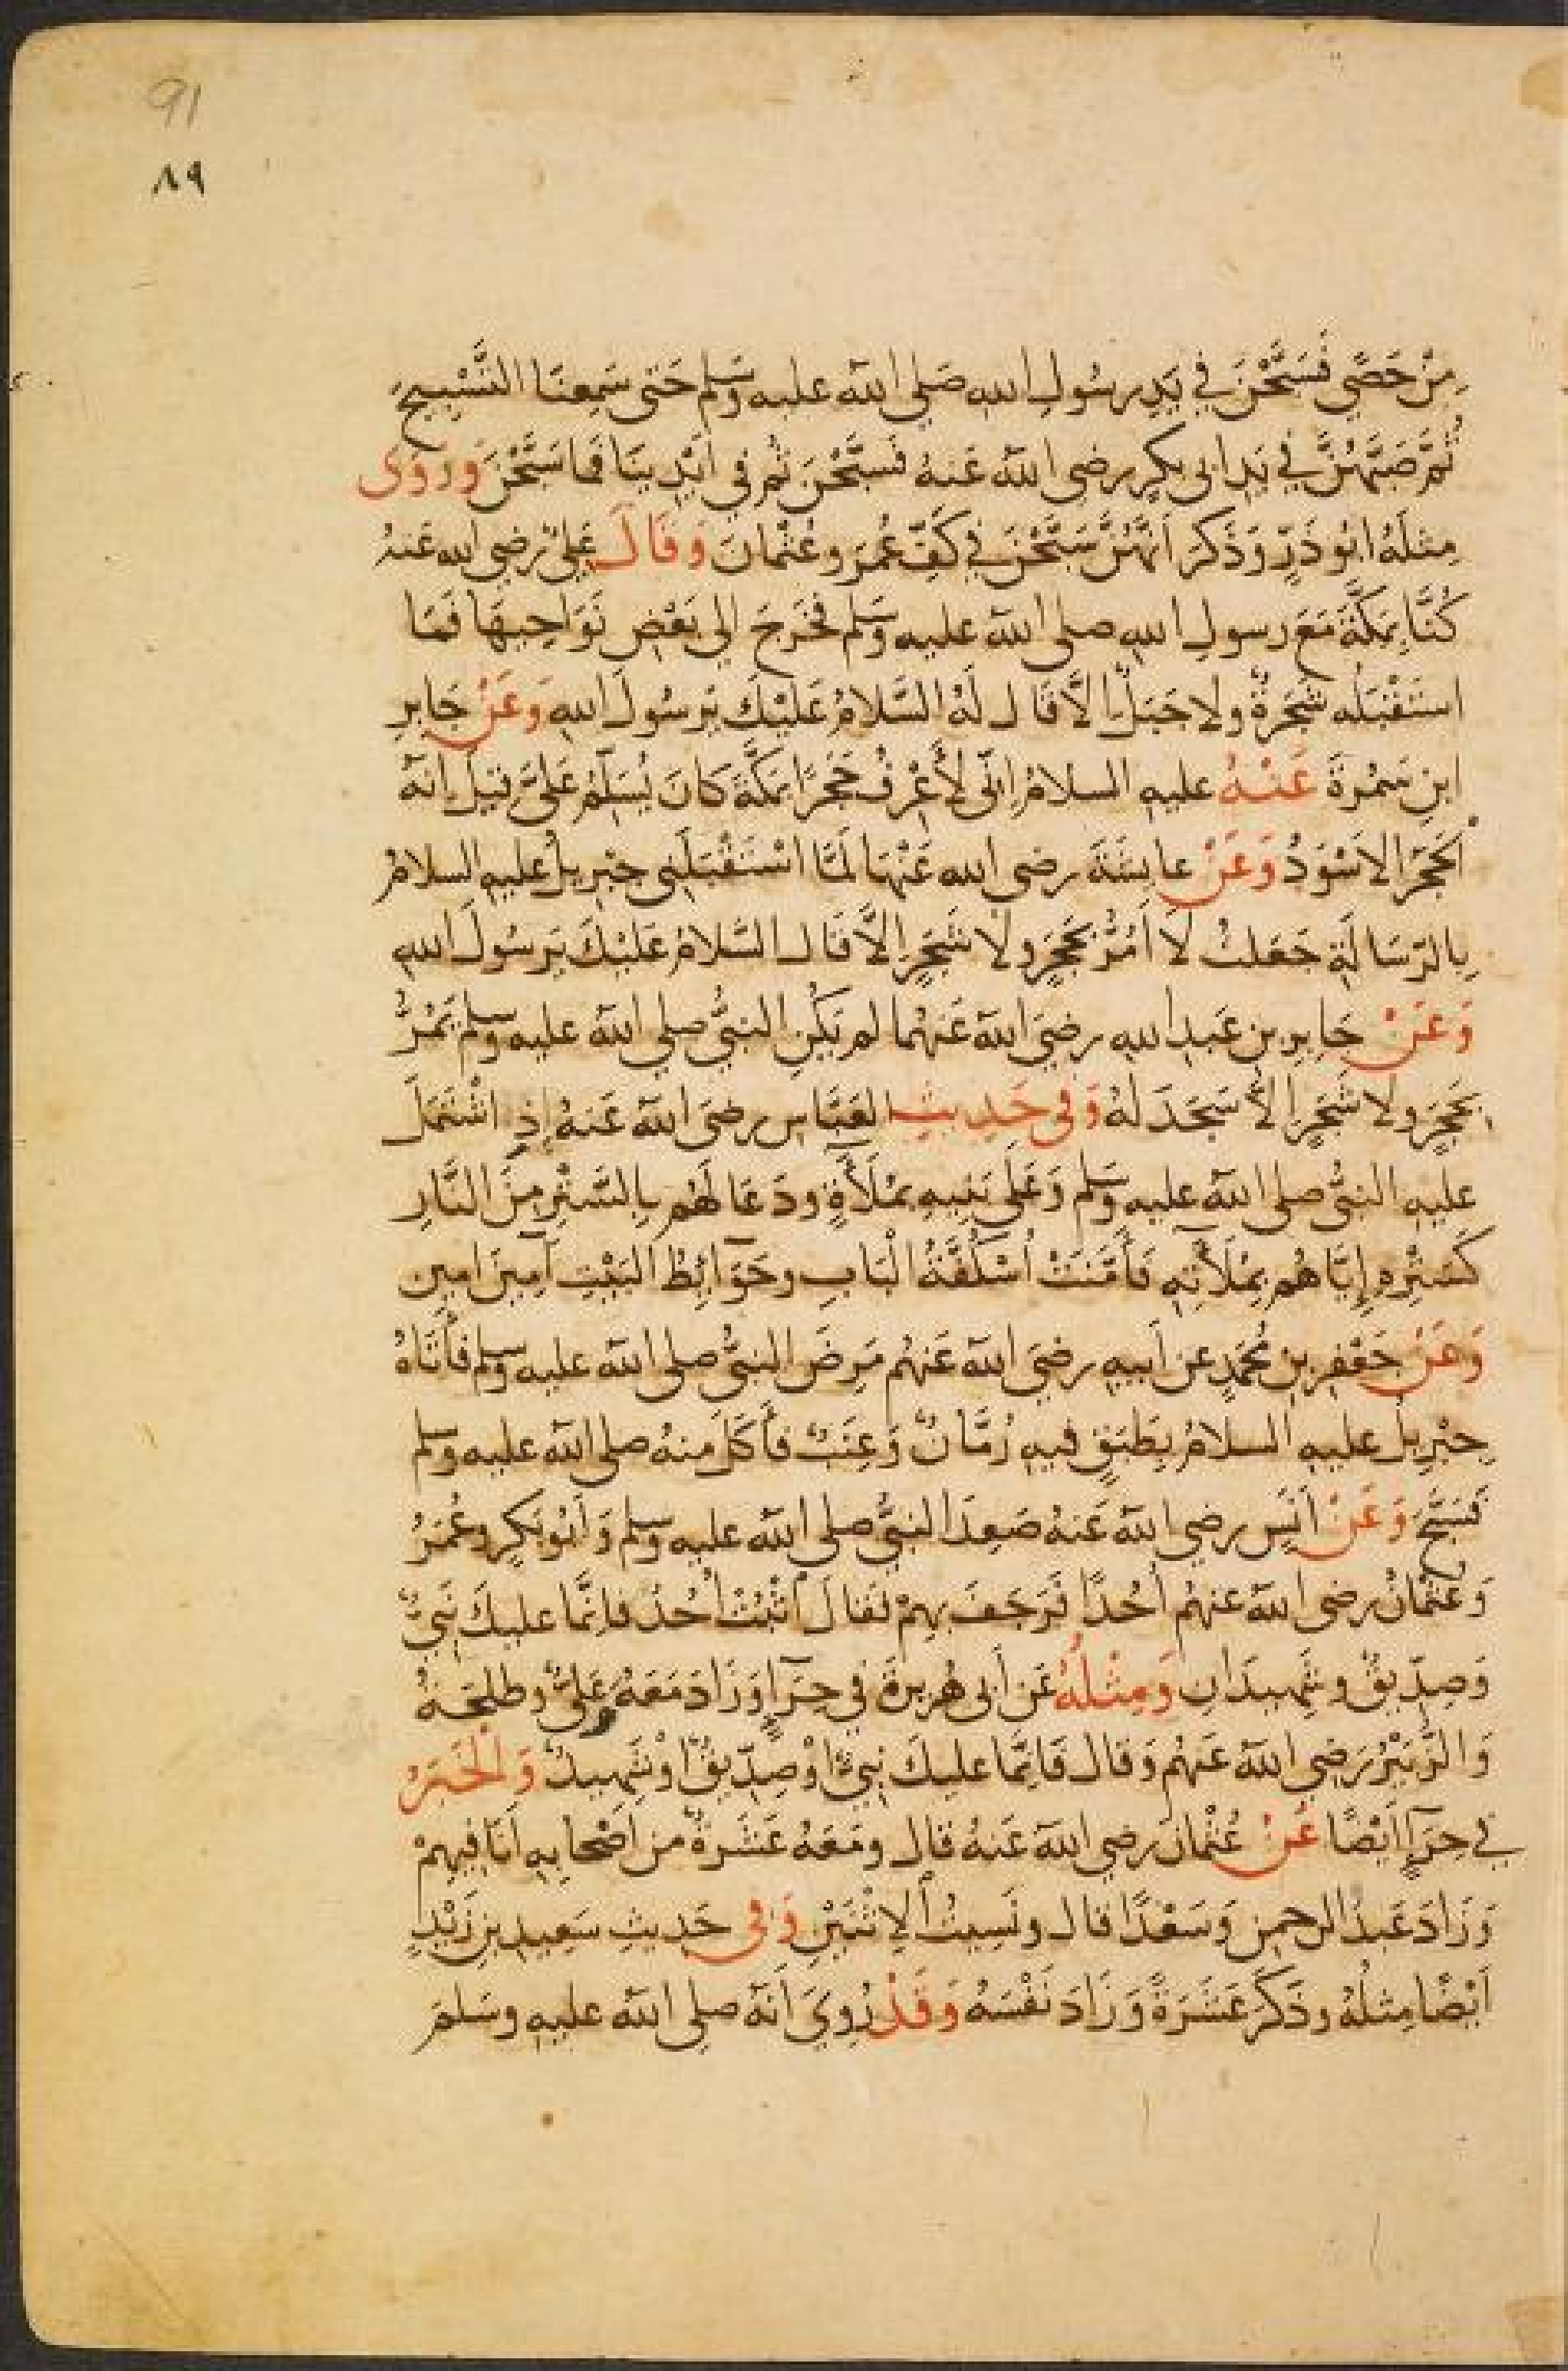 91
٨٩
مِنْ حَصًى فَسَبَّحْنَ فِي يَدِ رسُولِ اللهِ صَلى اللهُ عليه وَسَلم حَتى سَمِعنَا التَّسْبِيحَ
ثُمَّ صَبَّهُنَّ فِي يَدِ ابى بكرٍ رضى اللهُ عَنهُ فَسَبَّحْنَ ثم في اَيْدِينَا فما سَبَّحْنَ وروَى
مِثلَهُ ابُو ذَرٍّ وَذَكَرَ انَّهُنَّ سَبَّحْنَ فِي كَفِّ عُمَرَ وعُثمانَ وَقَالَ عَلِيٌّ رضى الله عَنهُ
كُنَّا بِمَكَّةَ مَعَ رسولِ اللهِ صلى اللهُ عليه وَسَلم فخَرَجَ الى بَعْضِ نَوَاحِيهَا فَمَا
استَقْبَلَه شَجَرةٌ ولا جَبَلٌ الاَّ قَال لَهُ السَّلامُ عَلَيْكَ يَرسُولَ اللهِ وَعَنْ جَابِرِ
ابنِ سَمُرةَ عَنْهُ عليهِ السلامُ اِنّى لأَعْرِفُ حَجَرًا بمَكَّةَ كَانَ يُسَلّمُ عَلَىَّ قيلَ اِنهُ
اَلحَجَرُ الاَسْوَدُ وَعَنْ عايشَةَ رضى الله عَنْهَا لمَّا اسْتَقْبَلَنِى جِبْرِيلُ عليهِ السلامُ
بِالرِّسَالَةِ جَعَلتُ لا اَمُرُّ بحَجَرٍ ولا شَجَرٍ اِلاَّ قَال السَّلامُ عَلَيْكَ يَرسُولَ اللهِ
وَعَنْ جَابِرِ بنِ عَبدِ اللهِ رضىَ اللهُ عَنهُما لم يَكُنِ النبيُّ صلى اللهُ عليه وسلم يَمُرُّ
بحَجَرٍ ولا شَجَرٍ الاَّ سَجَدَ لَهُ وَفى حَدِيثِ العَبَّاسِ رضىَ اللهُ عَنهُ اِذِ اشْتَمَلَ
عليهِ النبيُّ صلى اللهُ عليه وَسَلم وَعَلَى بَنِيهِ بمُلاَءَةٍ ودَعَا لَهُم بِالسَّتْرِ مِنَ النَّارِ
كَسَتْرِهِ اِيَّاهُم بِمُلاَءَتِهِ فَأَمَّنَتْ اُسْكُفَّةُ الْبَابِ وحَوَآئِطُ البَيْتِ آمِينَ امِين
وَعَنْ جَعْفرِ بنِ مُحَمّدٍ عن اَبيهِ رضىَ اللهُ عَنهُم مَرِضَ النبيُّ صلى اللهُ عليه وسلم فأَتَاهُ
جِبْرِيلُ عليهِ السلامُ بِطَبَقٍ فيهِ رُمَّانٌ وَعِنَبٌ فأَكَلَ منهُ صلى اللهُ عليه وسلم
فَسَبَّحَ وَعَنْ اَنَسٍ رضى اللهُ عَنهُ صَعِدَ النبيُّ صلى اللهُ عليه وسلم وَاَبُو بَكرٍ وعُمَرُ
وَعُثْمانُ رضى اللهُ عنهُم اُحُدًا فَرَجَفَ بِهِمْ فَقَالَ اثْبُتْ اُحُدُ فاِنَّما عليكَ نَبِيٌّ
وَصِدّيقٌ وشَهِيدَانِ وَمِثْلُهُ عَن أَبى هُريرةَ فِي حِرَآءٍ وَزَادَ مَعَهُ وَعَلِىٌّ وطلحَةُ
وَالزُّبَيْرُ رَضى اللهُ عَنهُم وَقال فَاِنَّما عليكَ نبيٌّ اوْ صِدّيقٌ اوْ شَهِيدٌ وَالخَبَرُ
فِي حِرَآءٍ اَيْضًا عَنْ عُثْمانَ رضى اللهُ عَنهُ قال ومَعَهُ عَشَرةٌ من اَصْحابِهِ اَنَا فِيهِمْ
وَزَادَ عَبدَ الرحمنِ وَسَعْدًا قال ونَسِيتُ الاِثْنَيْنِ وَفى حَديثِ سَعِيدِ بنِ زَيْدٍ
اَيْضًا مِثلُهُ وذَكَرَ عَشَرَةً وَزَادَ نَفْسَهُ وَقَدْ رُوِىَ اَنهُ صلى اللهُ عليهِ وسَلمَ